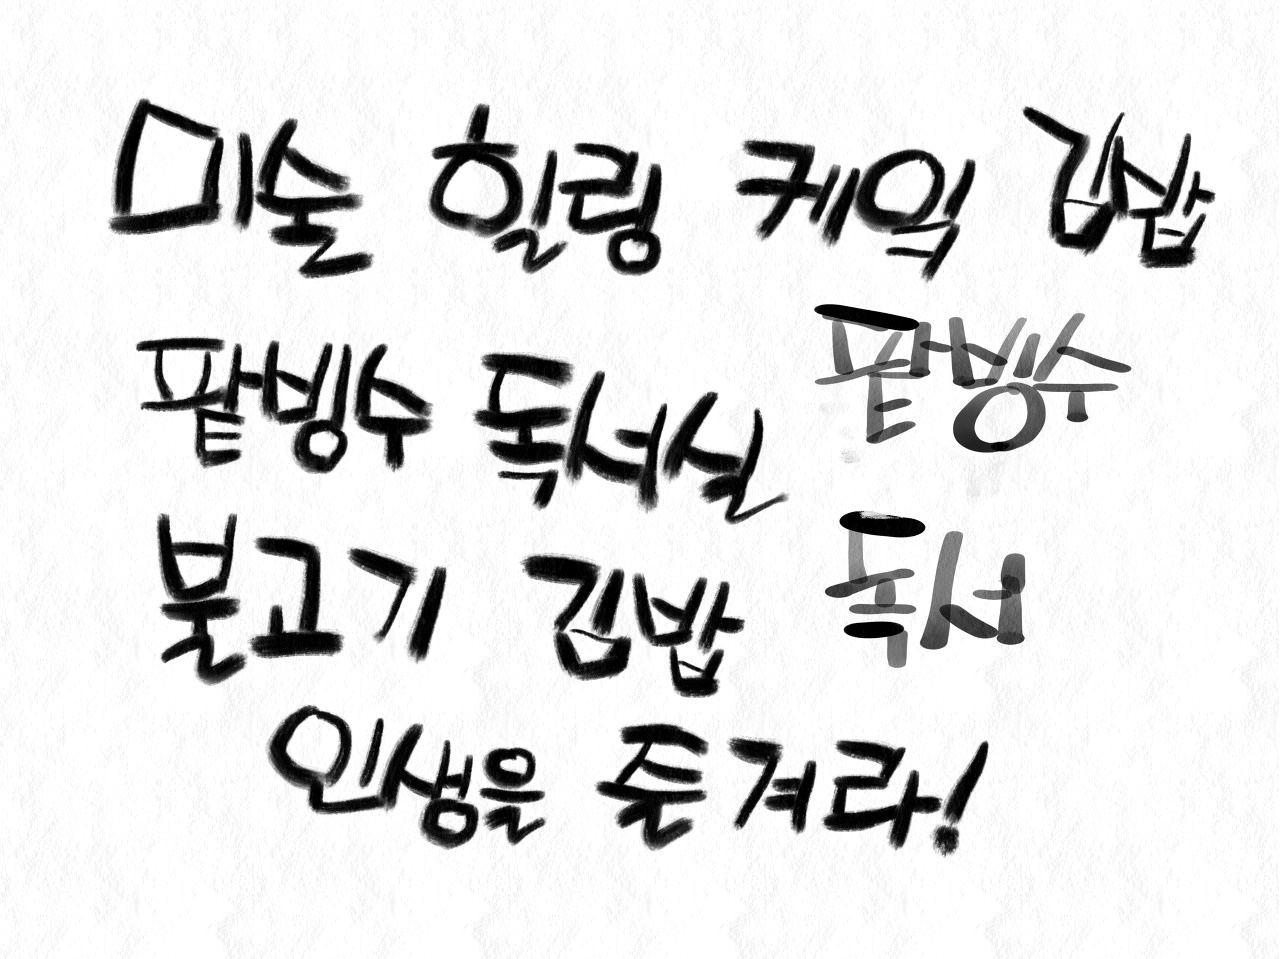 미술 힐링 케익 김밥
팥빙수 독서실 팥빙수
불고기 김밥 독서
인생을 즐겨라!